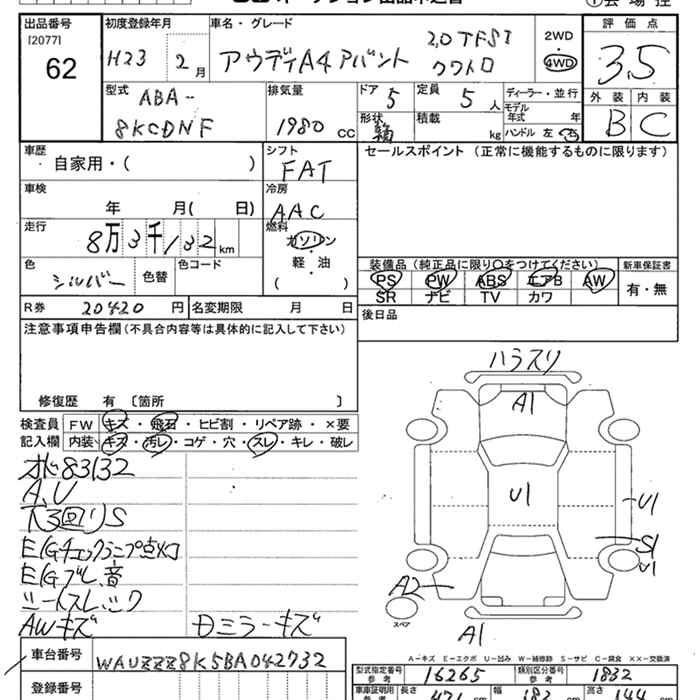 出品番号 初度登録年月 車名・グレード 評価点
[2077]
62 H23 2月 アウディA4アバント 2.0TFSI クワトロ 2WD 4WD 3.5
外装 内装
B C
型式 排気量 ドア 定員 ディーラー・並行
ABA- 5 5人 モデル年式 年
8KCDNF 1980cc 形状 積載 kg ハンドル 左
車歴 シフト セールスポイント (正常に機能するものに限ります)
・自家用・( ) FAT
車検 冷房
年 月( 日) AAC
走行 燃料
8万3千132km ガソリン
軽・油
( )
色 色替 色コード 装備品(純正品に限り○をつけてください) 新車保証書
シルバー PS PW ABS エアB AW 有・無
SR ナビ TV カワ
R券 20420円 名変期限 月 日 後日品
注意事項申告欄(不具合内容等は具体的に記入して下さい)
修復歴 有〔箇所 〕
検査員 FW キズ・飛石・ヒビ割・リペア跡・×要
記入欄 内装 キズ・汚レ・コゲ・穴・スレ・キレ・破レ
83132
A、U
下3回りS
E/Gチェックランプ点灯
E/Gブレ、音
シートスレ、シワ
AWキズ
Dミラーキズ
ハラスリ
A1
U1
U1
S1
U1
A2
スペア
A1
A-キズ E-エクボ U-凹み W-補修跡 S-サビ C-腐食 ××-交換済
車台番号 WAUZZZ8K5BA042732
登録番号
型式指定番号 参考 16265 類別区分番号 参考 1832
車庫証明用 参考 長さ 471cm 幅 182cm 高さ 144cm